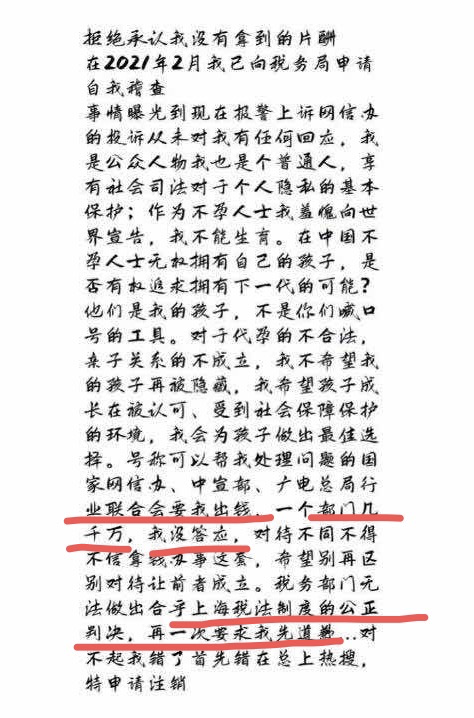 拒绝承认我没有拿到的片酬
在2021年2月我已向税务局申请
自我稽查
事情曝光到现在报警上诉网信办
的投诉从未对我有任何回应，我
是公众人物我也是个普通人，享
有社会司法对于个人隐私的基本
保护；作为不孕人士我羞愧向世
界宣告，我不能生育。在中国不
孕人士无权拥有自己的孩子，是
否有权追求拥有下一代的可能？
他们是我的孩子，不是你们喊口
号的工具。对于代孕的不合法，
亲子关系的不成立，我不希望我
的孩子再被隐藏，我希望孩子成
长在被认可、受到社会保障保护
的环境，我会为孩子做出最佳选
择。号称可以帮我处理问题的国
家网信办、中宣部、广电总局行
业联合会要我出钱，一个部门几
千万，我没答应，对待不同不得
不信拿钱办事这套，希望别再区
别对待让前者成立。税务部门无
法做出合乎上海税法制度的公正
判决，再一次要求我先道歉..对
不起我错了首先错在总上热搜，
特申请注销